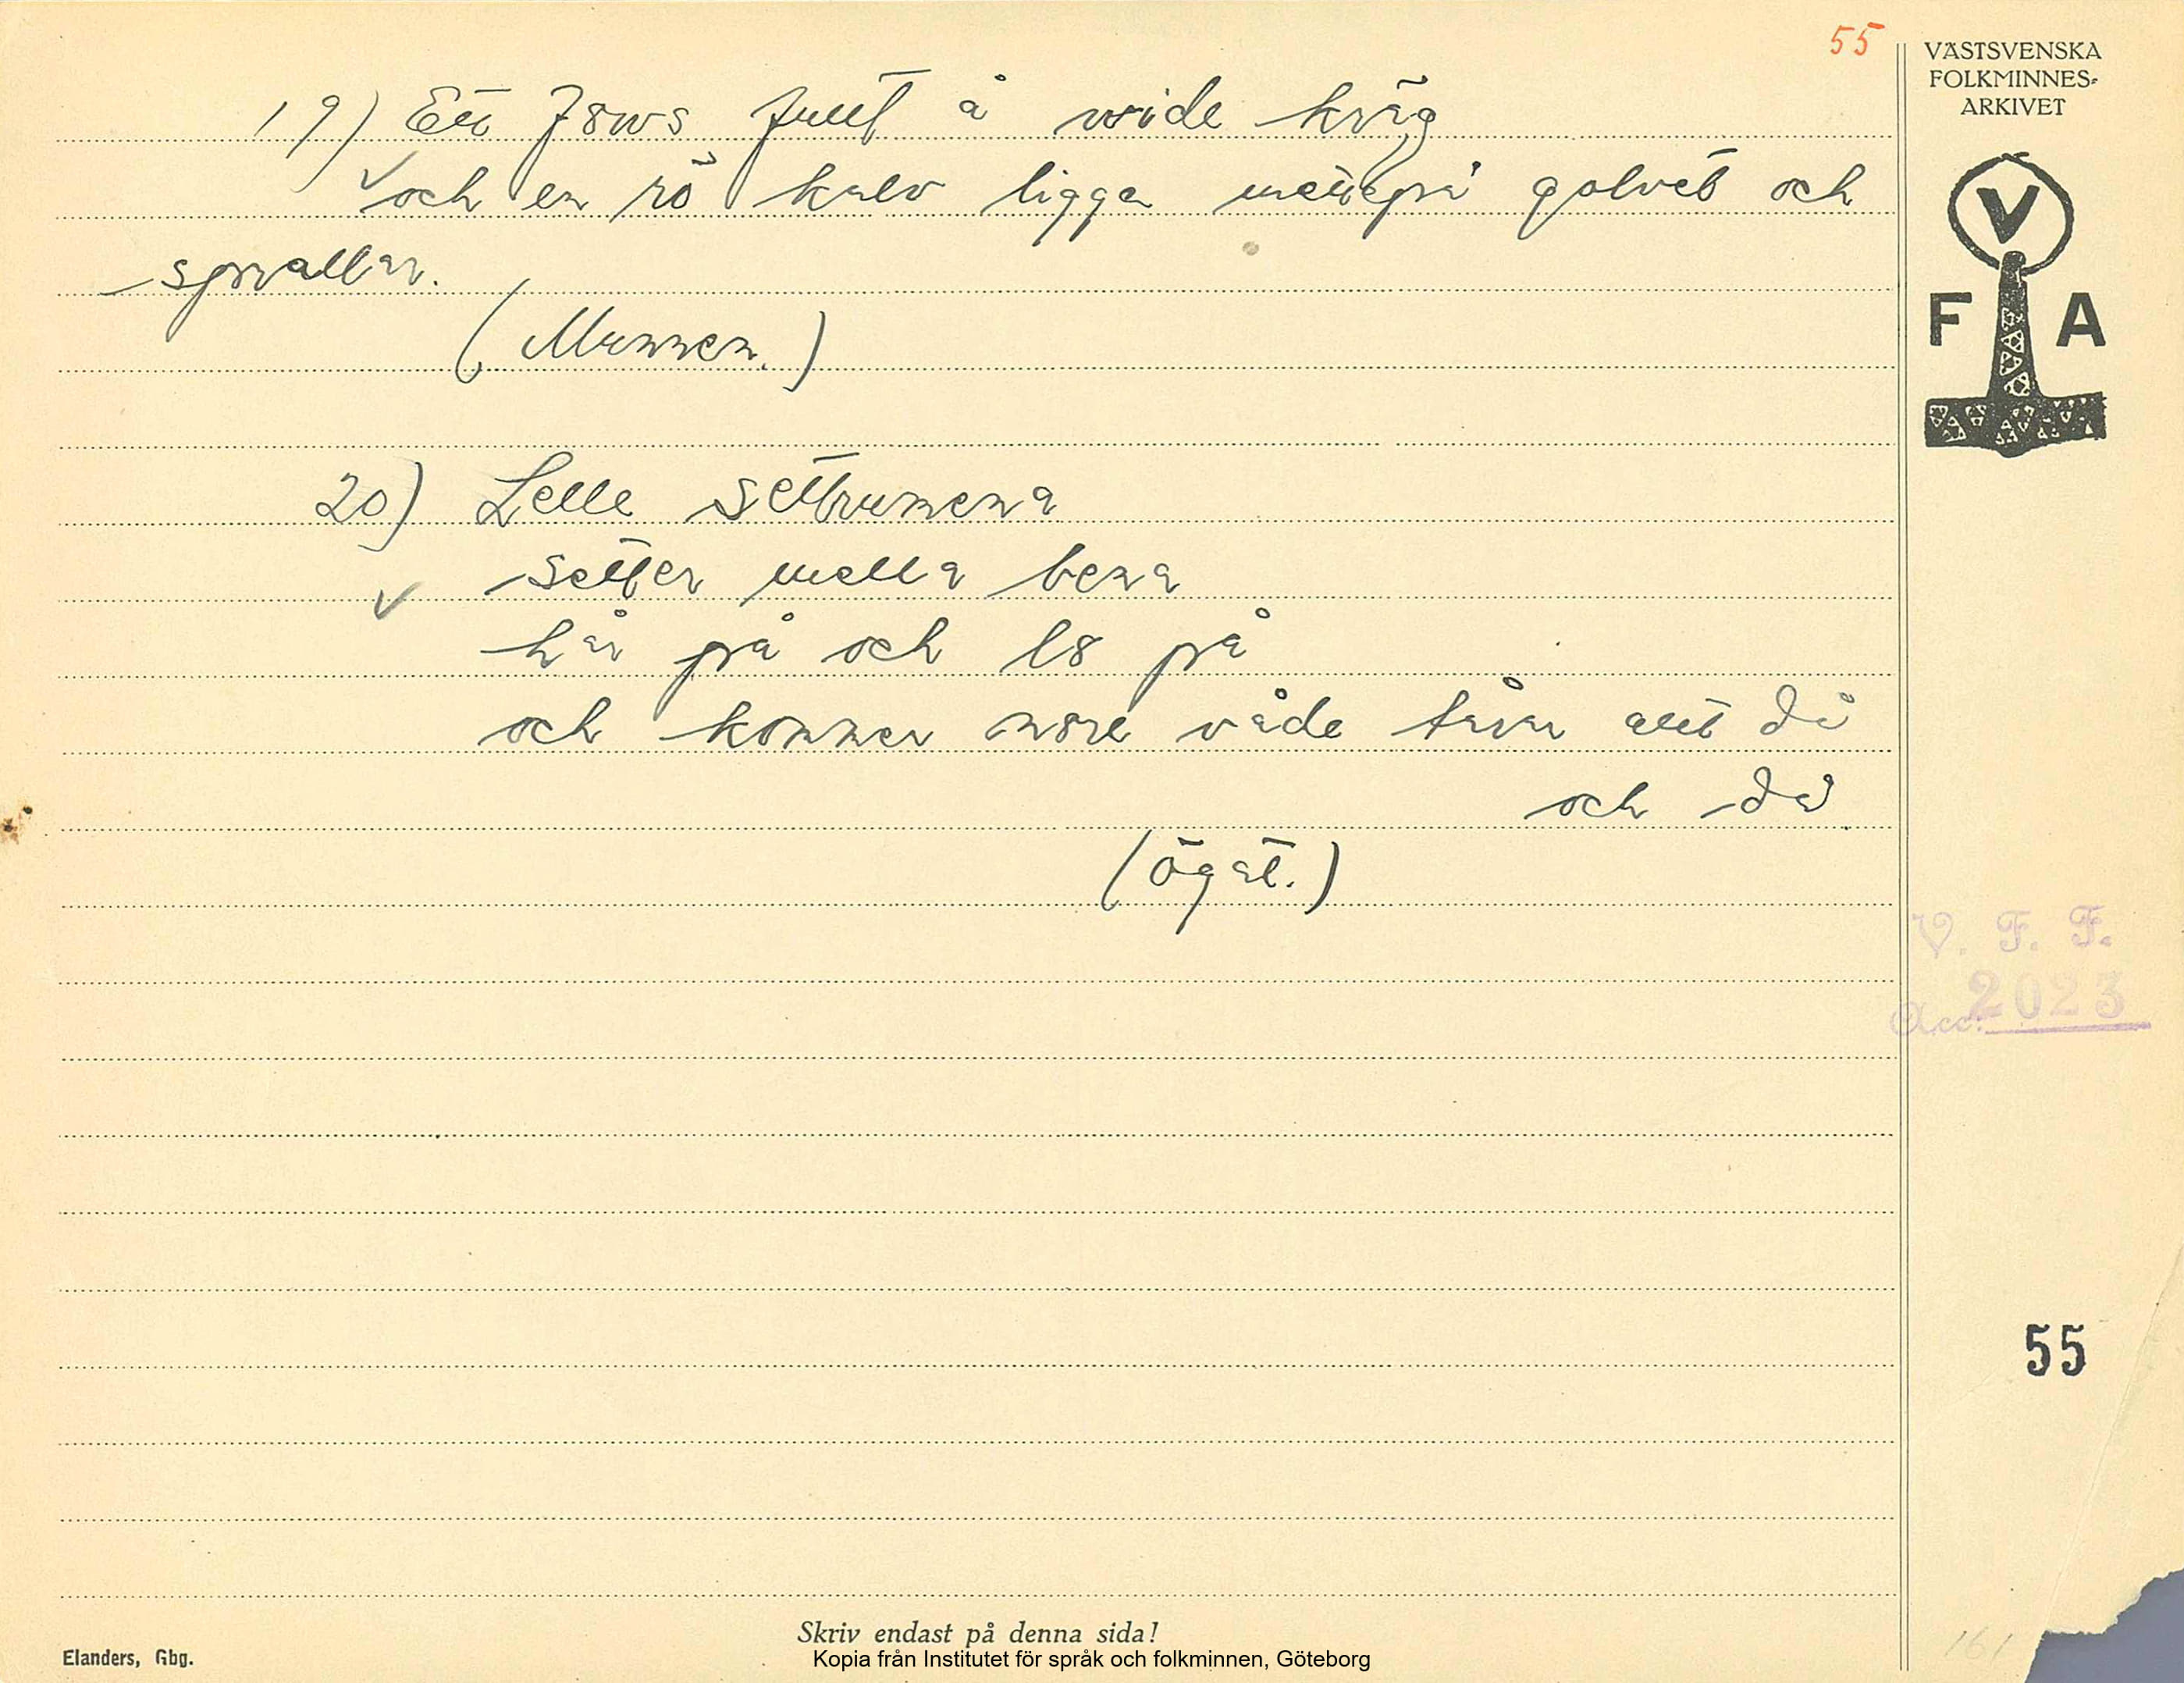 55
VÄSTSVENSKA
FOLKMINNES-
ARKIVET
19) Ett f8ws fullt å wide kräg
och en rö kalv ligger mettepå golvet och
sprallar.
(Munnen.)
20) Lelle settrumena
setter mella bena
hår på och l8 på
och kommer nore våde tårar allt då
och då
(Ögat.)
V
F A
V. F. F.
Acc. 2023
55
161
Skriv endast på denna sida!
Elanders, Gbg.
Kopia från Institutet för språk och folkminnen, Göteborg